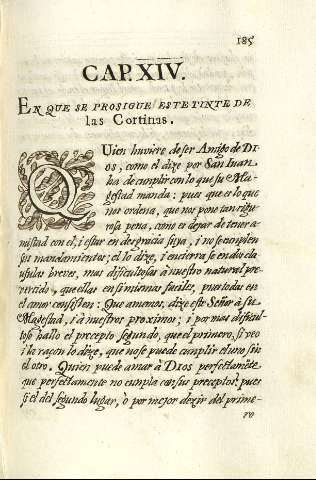 185
CAP. XIV.
EN QUE SE PROSIGUE ESTE TINTE DE
las Cortinas.
QUien huviere de ser Amigo de DI
os, como el dize por San Iuan
ha de cumplir con lo que su Ma-
gestad manda: pues que es lo que
nos ordena, que nos pone tan rigu-
rosa pena, como es dejar de tener a-
mistad con el, i estar en desgracia suya, i no se cumplen
sus mandamientos; el lo dize, i encierra se en dos cla
usulas breves, mas dificultosas à nuestro natural pre-
vertido, que ellas en si mismas faciles, pues todas en
el amor consisten: Que amenos, dize este Señor à su
Magestad, i à nuestros proximos; i por mas dificul-
toso hallo el precepto segundo, que el primero, si veo
i la raçon lo dize, que no se puede cumplir el uno sin
el otro. Quien puede amar à DIOS perfectamẽte
que perfectamente no cumpla con sus preceptos? pues
si el del segundo lugar, ò por mejor dezir del prime-
ro